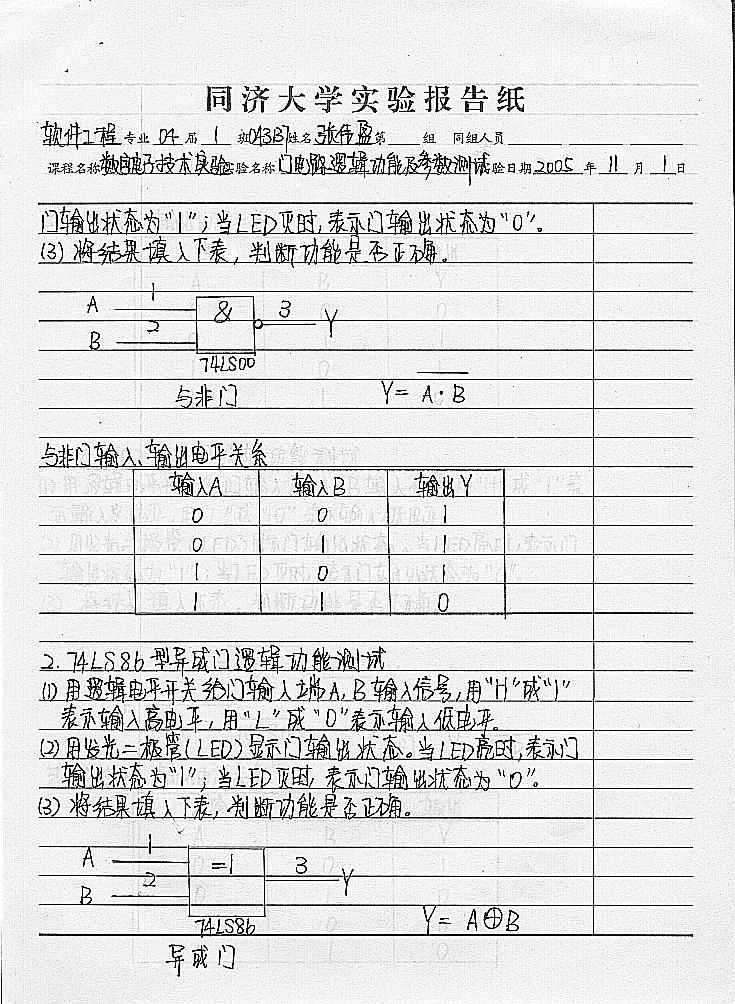 同济大学实验报告纸
软件工程 专业 04 届 1 班 姓名 张伟盈 第 组 同组人员
课程名称 数字电子技术实验 实验名称 门电路逻辑功能及参数测试 验日期 2005 年 11 月 1 日
门输出状态为"1"；当LED灭时，表示门输出状态为"0"。
(3) 将结果填入下表，判断功能是否正确。
A 1
& 3 Y
B 2
74LS00
与非门 Y= A·B
与非门输入、输出电平关系
输入A 输入B 输出Y
0 0 1
0 1 1
1 0 1
1 1 0
2. 74LS86型异或门逻辑功能测试
(1) 用逻辑电平开关给门输入端A、B输入信号，用"H"或"1"
表示输入高电平，用"L"或"0"表示输入低电平。
(2) 用发光二极管(LED)显示门输出状态。当LED亮时，表示门
输出状态为"1"；当LED灭时，表示门输出状态为"0"。
(3) 将结果填入下表，判断功能是否正确。
A 1
=1 3 Y
B 2
74LS86 Y= A⊕B
异或门